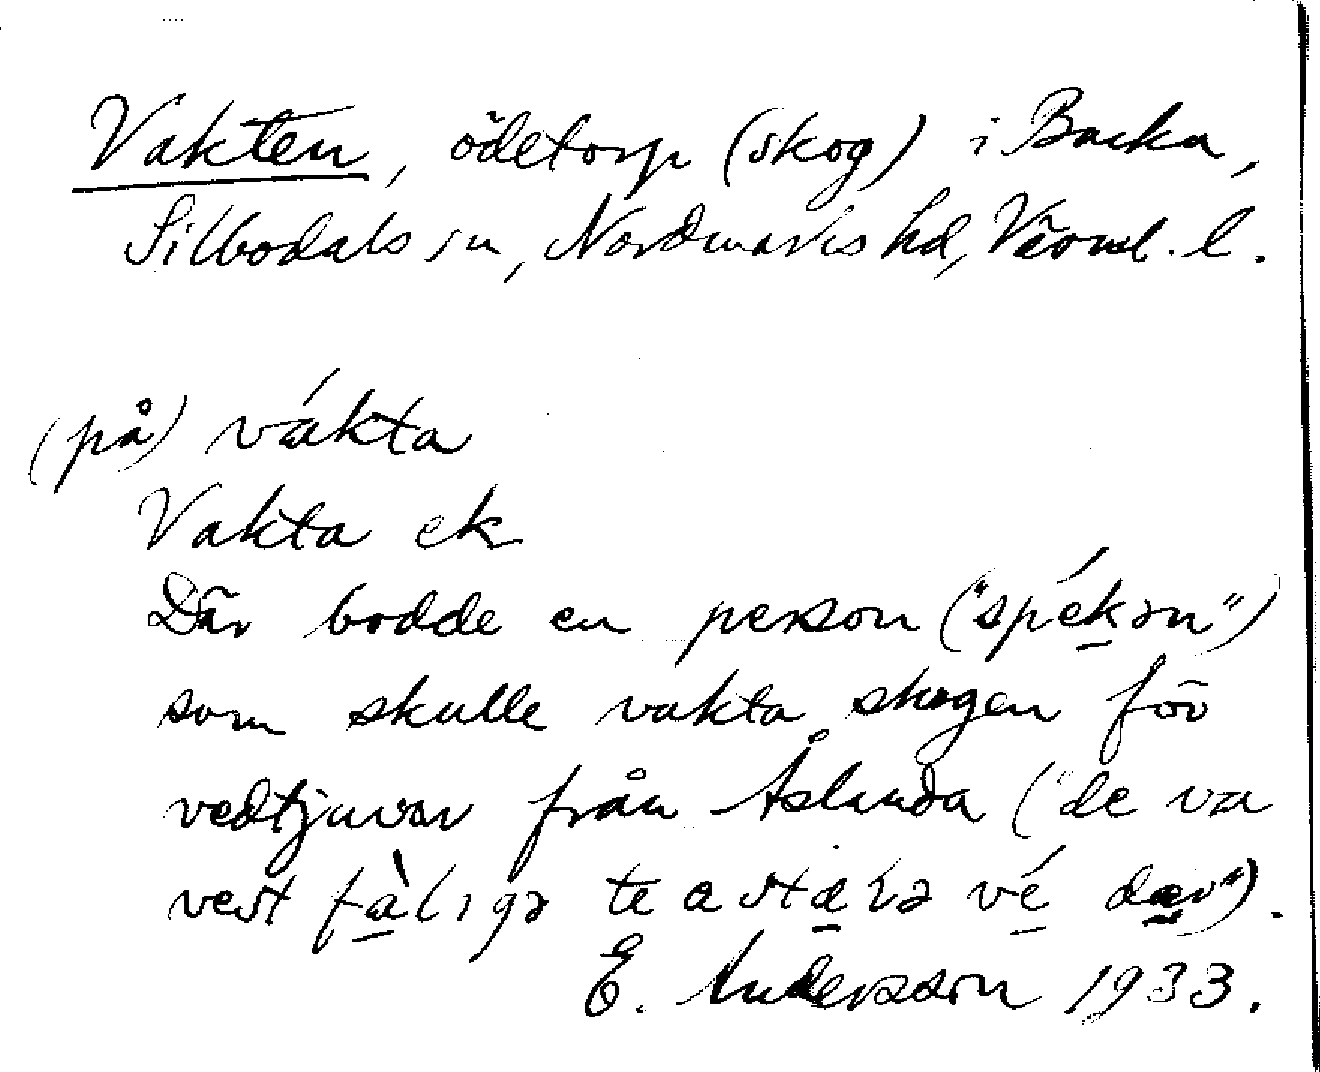 Vakten, ödetorp (skog) i Backa,
Silbodals sn, Nordmarks hd, Värml. l.
(på) vákta
Vakta ek
Där bodde en person ("spékən")
som skulle vakta skogen för
vedtjuvar från Åslanda ("de va
vest fàligə te a stæla vé dær").
E. Andersson 1933.